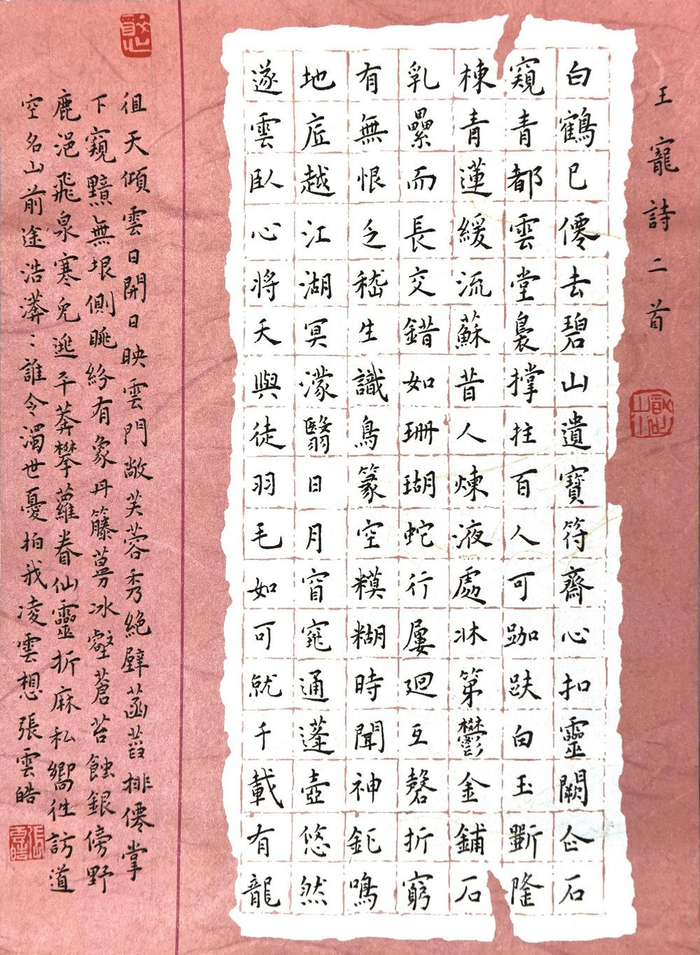 王寵詩二首
白鶴已僊去碧山遺寶符齋心扣靈闕企石
窺青都雲堂裊撑拄百人可跏趺白玉斲隆
棟青蓮緩流蘇昔人煉液處牀第鬱金鋪石
乳纍而長交錯如珊瑚蛇行屢迴互磬折窮
有無恨乏嵇生識鳥篆空糢糊時聞神鉅鳴
地底越江湖冥濛翳日月窅窕通蓬壺悠然
遂雲臥心將天與徒羽毛如可就千載有龍
徂天傾雲日開日映雲門敞芙蓉秀絕壁菡萏排僊掌
下窺黯無垠側眺紛有象丹籐蔓冰壑蒼苔蝕銀傍野
鹿浥飛泉寒兔逃平莽攀蘿眷仙靈折麻私嚮往訪道
空名山前途浩漭〻誰令濁世憂拍我凌雲想張雲皓